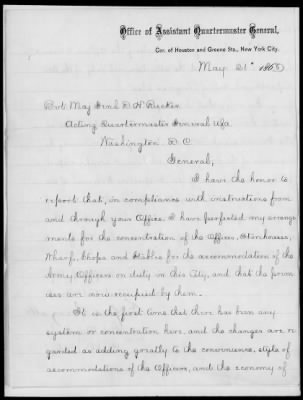 Office of Assistant Quartermaster General,
Cor. of Houston and Greene Sts., New York City.
May 21" 1868
Bvt Maj Genl D. H Rucker
Acting Quartermaster General USA
Washington D C
General;
I have the honor to
report that, in compliance with instructions from
and through your Office, I have perfected my arrange
ments for the concentration of the Offices, Storehouses,
Wharf, Shops and Stables for the accommodation of the
Army Officers on duty in this City, and that the prem
ises are now occupied by them.
It is the first time that there has been any
system or concentration here, and the changes are re
garded as adding greatly to the convenience, style of
accommodations of the Officers, and the economy of